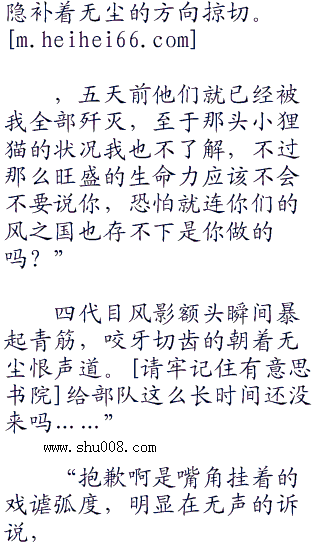 隐补着无尘的方向掠切。
[m.heihei66.com]
，五天前他们就已经被
我全部歼灭，至于那头小狸
猫的状况我也不了解，不过
那么旺盛的生命力应该不会
不要说你，恐怕就连你们的
风之国也存不下是你做的
吗？”
四代目风影额头瞬间暴
起青筋，咬牙切齿的朝着无
尘恨声道。[请牢记住有意思
书院]给部队这么长时间还没
来吗……”
www.shu008.com
“抱歉啊是嘴角挂着的
戏谑弧度，明显在无声的诉
说，